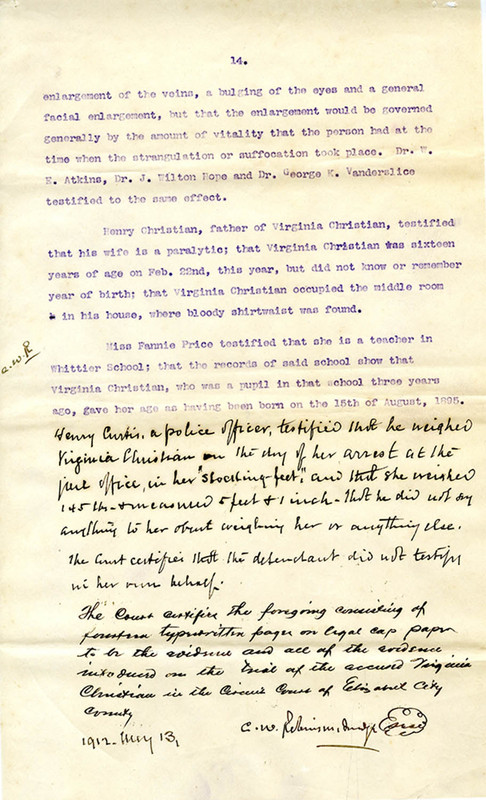 14.
enlargement of the veins, a bulging of the eyes and a general
facial enlargement, but that the enlargement would be governed
generally by the amount of vitality that the person had at the
time when the strangulation or suffocation took place. Dr. W.
E. Atkins, Dr. J. Wilton Hope and Dr. George K. Vanderslice
testified to the same effect.
Henry Christian, father of Virginia Christian, testified
that his wife is a paralytic; that Virginia Christian was sixteen
years of age on Feb. 22nd, this year, but did not know or remember
year of birth; that Virginia Christian occupied the middle room
in his house, where bloody shirtwaist was found.
C.W.R
Miss Fannie Price testified that she is a teacher in
Whittier School; that the records of said school show that
Virginia Christian, who was a pupil in that school three years
ago, gave her age as having been born on the 15th of August, 1895.
Henry Curtis, a police officer, testified that he weighed
Virginia Christian on the day of her arrest at the
office, in her "stocking-feet," and that she weighed
145 lbs. & measured 5 feet & 1 inch - that he did not say
anything to her about weighing her or anything else.
The Court certifies that the defendant did not testify
in her own behalf.
The Court certifies the foregoing consisting of
fourteen typewritten pages on legal cap paper
to be the evidence and all of the evidence
introduced on the trial of the accused Virginia
Christian in the Circuit Court of Elizabeth City
County
1912. May 13,
C. W. Robinson, Judge